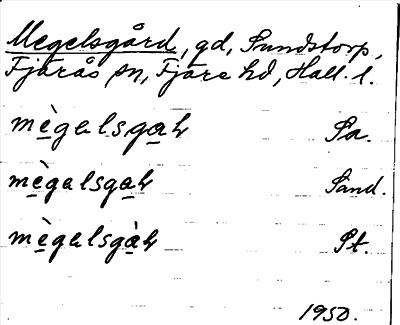 Megelsgård, gd, Sundstorp,
Fjärås sn, Fjäre hd, Hall. l.
mègalsgaʀ Sa.
mègalsgaʀ Sand.
mègalsgàʀ St.
1950.